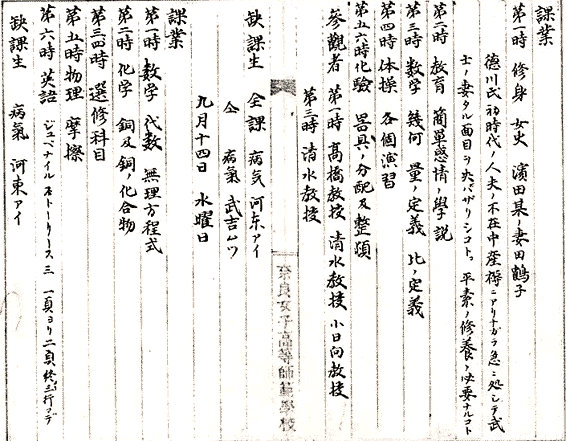 課業
第一時 修身 女史 濱田某ノ妻田鶴子
徳川氏初時代ノ人夫ノ不在中産褥ニアリナガラ急ニ処シテ武
士ノ妻タル面目ヲ失ハザリシコト、平素ノ修養ノ必要ナルコト
第二時 教育 簡單感情ノ學説
第三時 数学 幾何 量ノ定義 比ノ定義
第四時 体操 各個演習
第五六時化驗 器具ノ分配及整頓
參觀者 第一時 高橋教授 清水教授 小日向教授
第三時 清水教授
奈良女子高等師範學校
缺課生 全課 病気 河东アイ
仝 病氣 武吉ムツ
九月十四日 水曜日
課業
第一時 数学 代数 無理方程式
第二時 化学 銅及銅ノ化合物
第三四時 選修科目
第五時物理 摩擦
第六時 英語 ジュベナイルストーリース三 一頁ヨリ二頁終三行マデ
缺課生 病氣 河東アイ